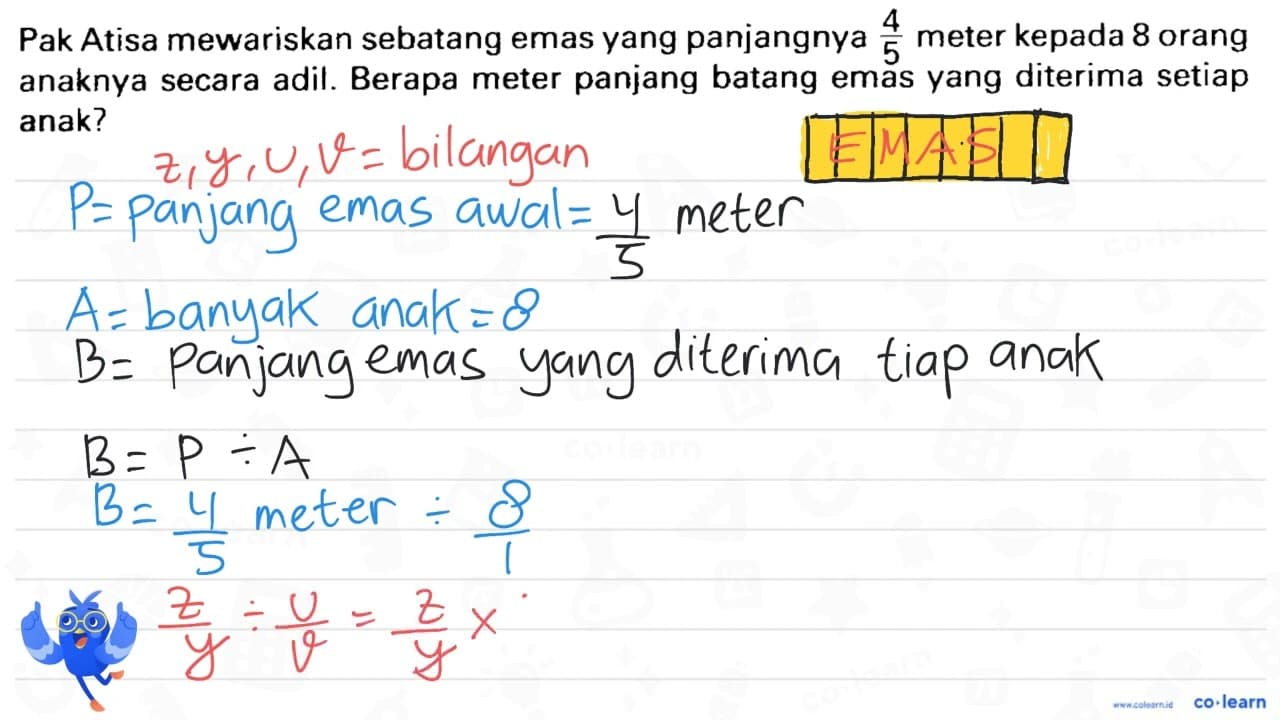 Pak Atisa mewariskan sebatang emas yang panjangnya 4/5 meter kepada 8 orang
anaknya secara adil. Berapa meter panjang batang emas yang diterima setiap
anak?
EMAS
z, y, u, v = bilangan
P = panjang emas awal = 4/5 meter
A = banyak anak = 8
B = panjang emas yang diterima tiap anak
B = P ÷ A
B = 4/5 meter ÷ 8/1
z/y ÷ u/v = z/y ×
www.colearn.id co·learn